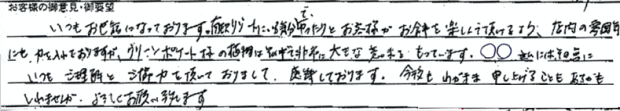 お客様の御意見・御要望
いつもお世話になっております。南国リゾートにいる気分で、ゆったりとお客様がお食事を楽しんで頂けるよう、店内の雰囲気
にも力を入れておりますが、グリーンポケット様の植物は その中で非常に大きな意味を もっています。〇〇 様には その点に
いつも ご理解と ご協力を頂いておりまして、感謝しております。今後も わがままを 申し上げることも あるかも
しれませんが、よろしくお願い致します